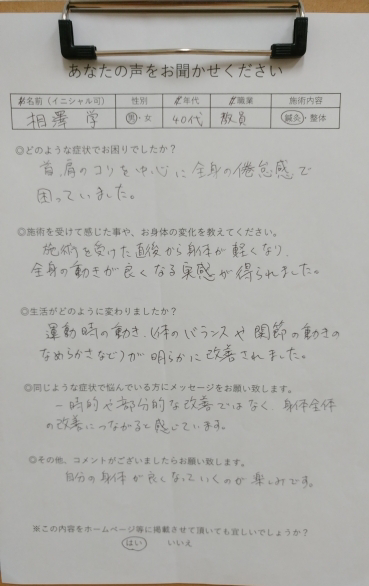 あなたの声をお聞かせください
お名前（イニシャル可） 性別 年代 職業 施術内容
相澤 学 男・女 40代 教員 鍼灸・整体
◎どのような症状でお困りでしたか？
首、肩のコリを中心に全身の倦怠感で
困っていました。
◎施術を受けて感じた事や、お身体の変化を教えてください。
施術を受けた直後から身体が軽くなり、
全身の動きが良くなる実感が得られました。
◎生活がどのように変わりましたか？
運動時の動き、(体のバランスや関節の動きの
なめらかさなど)が明らかに改善されました。
◎同じような症状で悩んでいる方にメッセージをお願い致します。
一時的や部分的な改善ではなく、身体全体
の改善につながると感じています。
◎その他、コメントがございましたらお願い致します。
自分の身体が良くなっていくのが楽しみです。
※この内容をホームページ等に掲載させて頂いても宜しいでしょうか？
はい いいえ